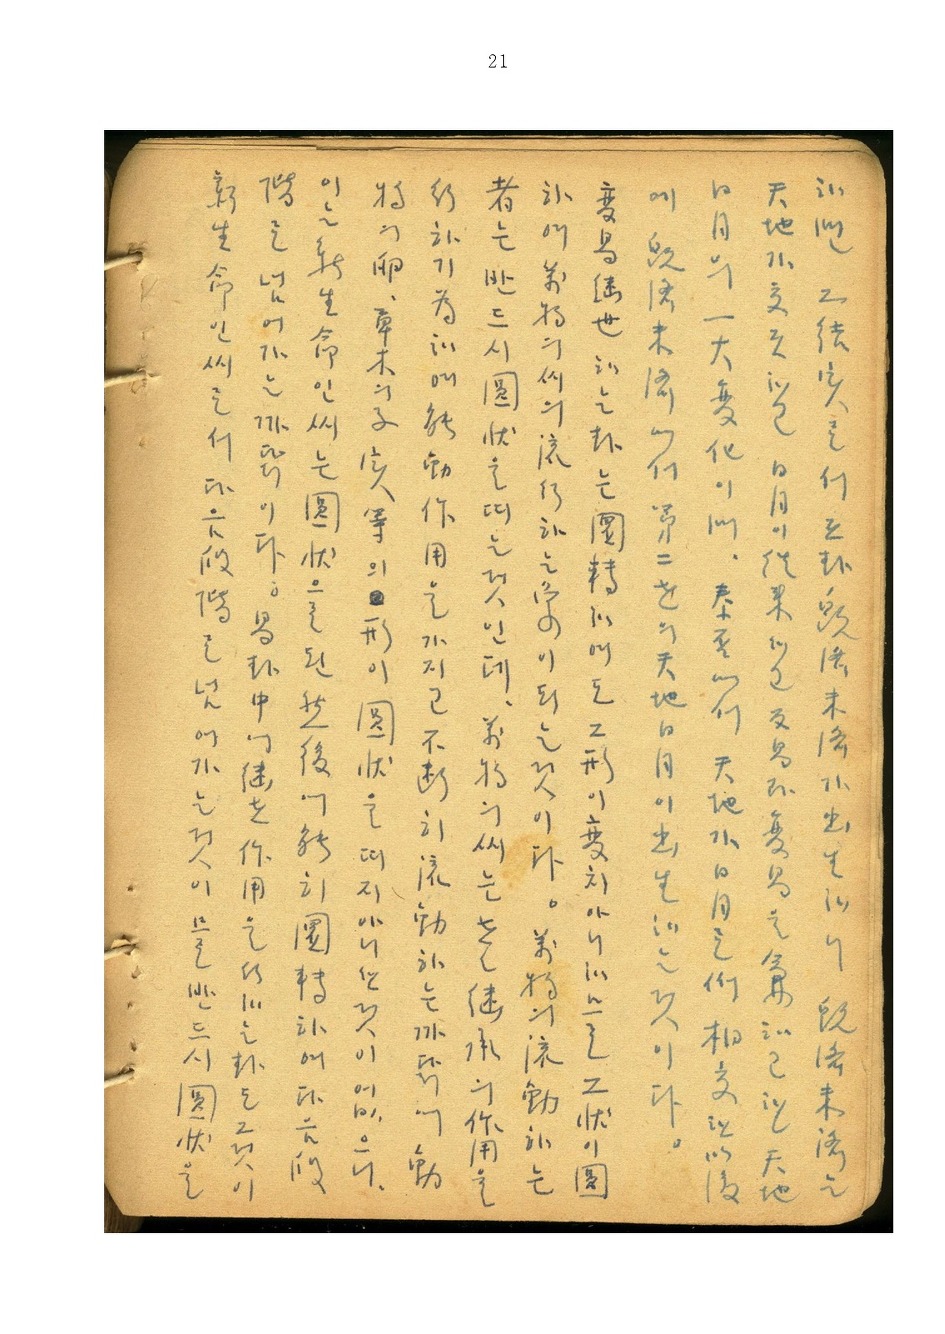 21
하면 그 結實로서 모卦 旣濟未濟가 出生하니 旣濟未濟는
天地가 交互하고 日月이 往來하고 反易과 變易을 兼하고 한 天地
日月의 一大變化이며. 泰否에서 天地가 日月로서 相交한 以後
에 旣濟未濟에서 第二世의 天地日月이 出生하는 것이다。
變易繼世하는 卦는 圓轉하여도 그 形이 變치 아니하므로 그 狀이 圓
하여 萬物의 씨의 流行하는 象이 되는 것이다。萬物의 流動하는
者는 반드시 圓狀을 띠는 것인데、萬物의 씨는 世世繼承의 作用을
行하기 爲하여 能動作用을 가지고 不斷히 流動하는 까닭에 動
物의 卵、草木의 子實等의 形이 圓狀을 띠지 아니한 것이 없으니、
이는 新生命인 씨는 圓狀으로 된 然後에 能히 圓轉하여 다음 段
階로 넘어가는 까닭이다。易卦中에 繼世作用을 行하는 卦도 그것이
新生命인 씨로서 다음 段階로 넘어가는 것이므로 반드시 圓狀을